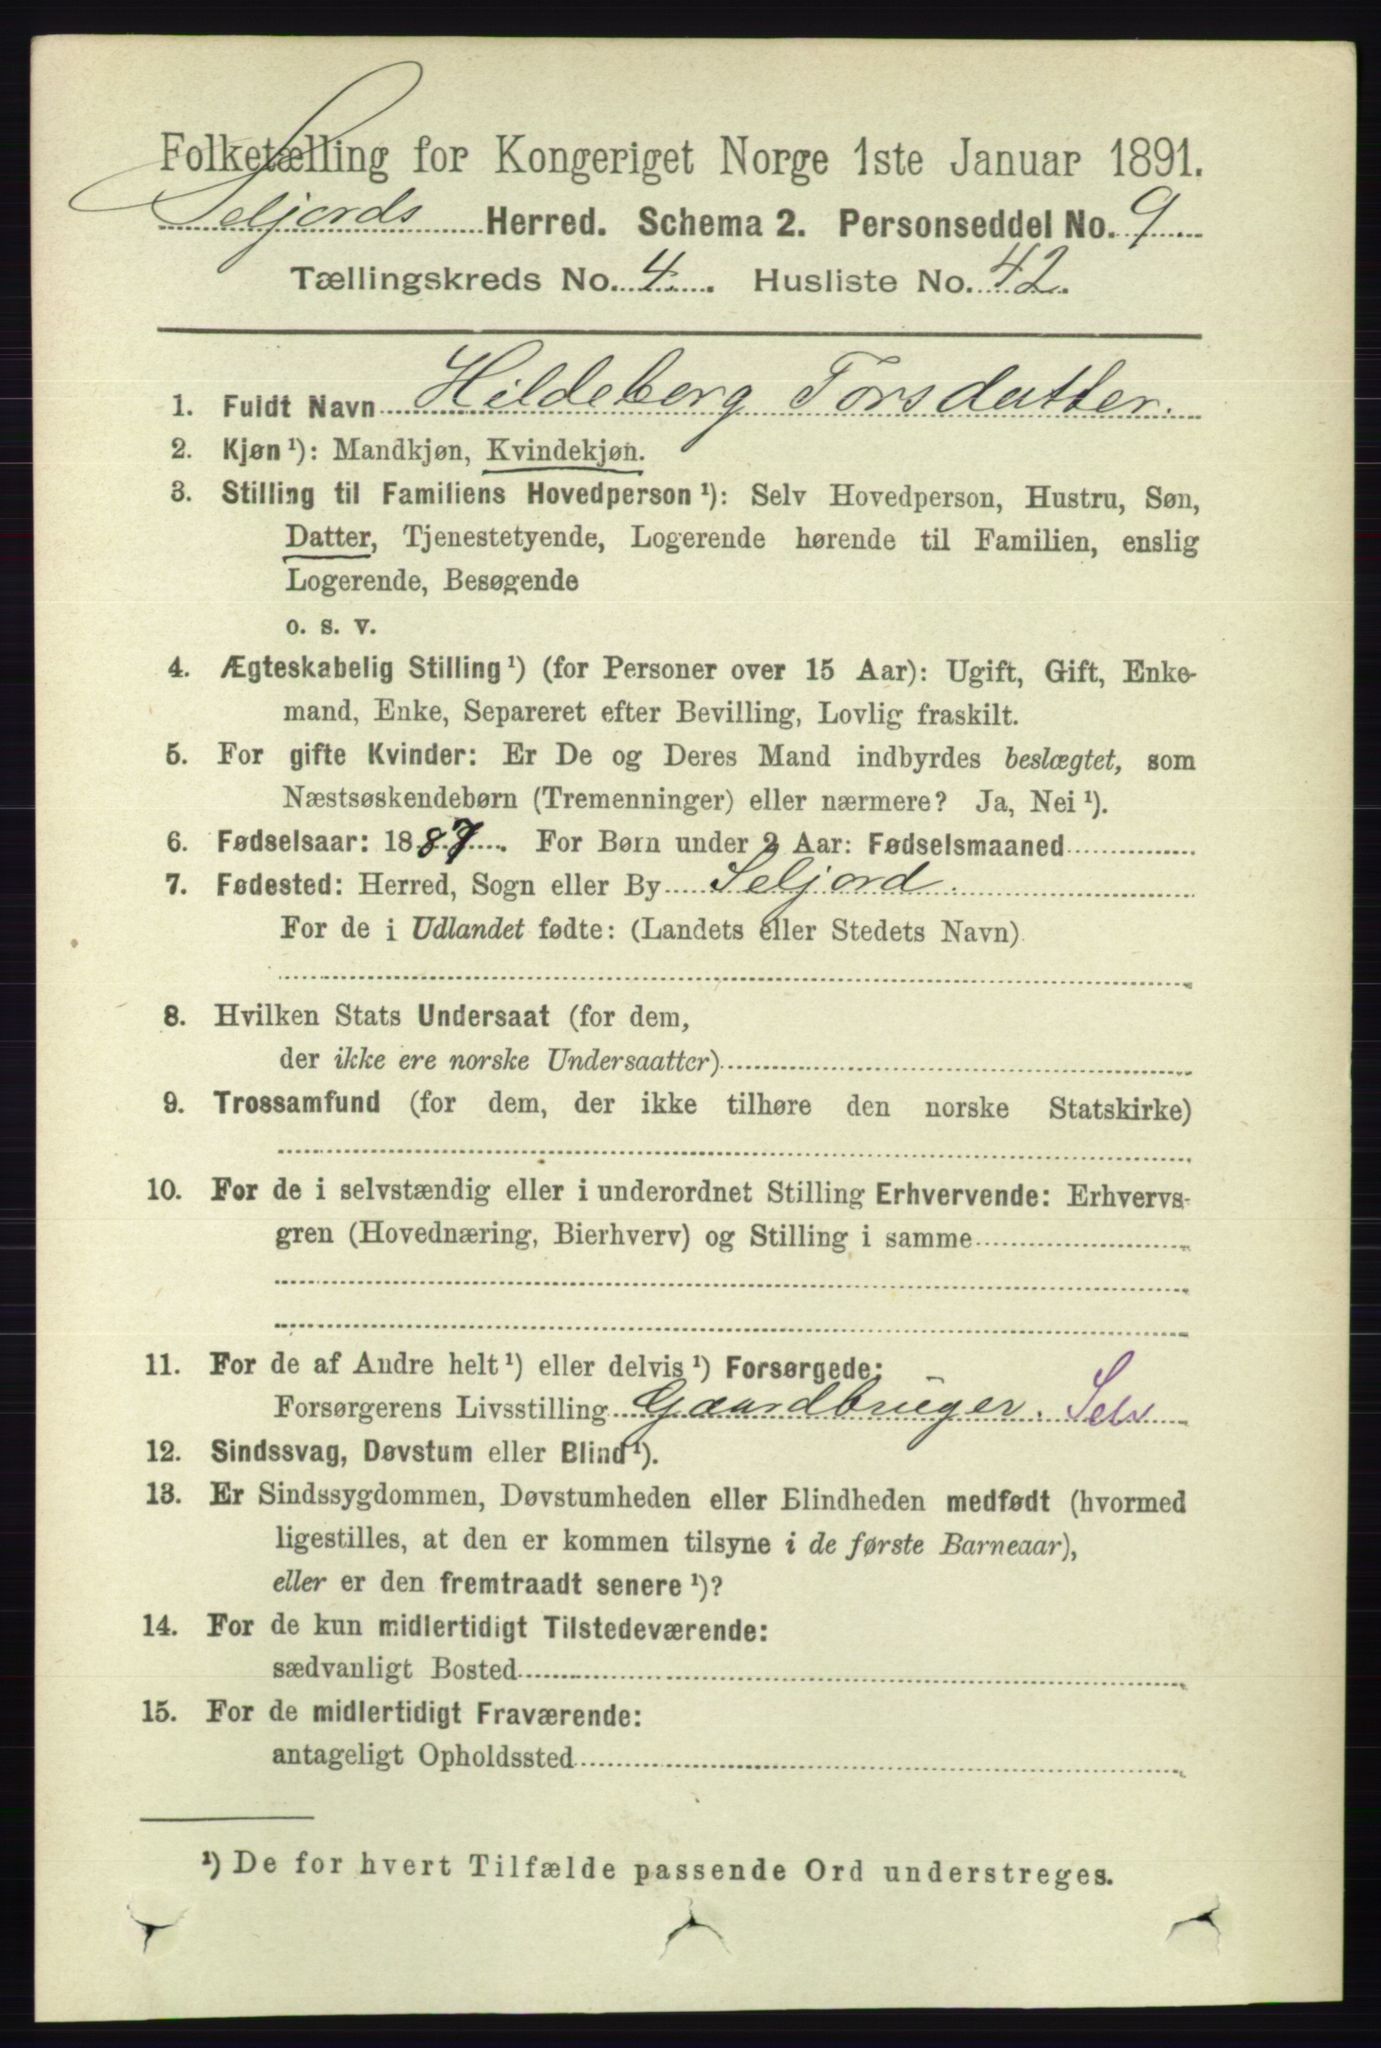 Folketælling for Kongeriget Norge 1ste Januar 1891.
Seljords Herred. Schema 2. Personseddel No. 9
Tællingskreds No. 4. Husliste No. 42.
1. Fuldt Navn Hildeberg Torsdatter.
2. Kjøn ¹): Mandkjøn, Kvindekjøn.
3. Stilling til Familiens Hovedperson ¹): Selv Hovedperson, Hustru, Søn,
Datter, Tjenestetyende, Logerende hørende til Familien, enslig
Logerende, Besøgende
o. s. v.
4. Ægteskabelig Stilling ¹) (for Personer over 15 Aar): Ugift, Gift, Enke-
mand, Enke, Separeret efter Bevilling, Lovlig fraskilt.
5. For gifte Kvinder: Er De og Deres Mand indbyrdes beslægtet, som
Næstsøskendebørn (Tremenninger) eller nærmere? Ja, Nei ¹).
6. Fødselsaar: 1887. For Børn under 2 Aar: Fødselsmaaned
7. Fødested: Herred, Sogn eller By Seljord.
For de i Udlandet fødte: (Landets eller Stedets Navn)
8. Hvilken Stats Undersaat (for dem,
der ikke ere norske Undersaatter)
9. Trossamfund (for dem, der ikke tilhøre den norske Statskirke)
10. For de i selvstændig eller i underordnet Stilling Erhvervende: Erhvervs-
gren (Hovednæring, Bierhverv) og Stilling i samme
11. For de af Andre helt ¹) eller delvis ¹) Forsørgede:
Forsørgerens Livsstilling Gaardbruger. Selv
12. Sindssvag, Døvstum eller Blind ¹).
13. Er Sindssygdommen, Døvstumheden eller Blindheden medfødt (hvormed
ligestilles, at den er kommen tilsyne i de første Barneaar),
eller er den fremtraadt senere ¹)?
14. For de kun midlertidigt Tilstedeværende:
sædvanligt Bosted
15. For de midlertidigt Fraværende:
antageligt Opholdssted
¹) De for hvert Tilfælde passende Ord understreges.